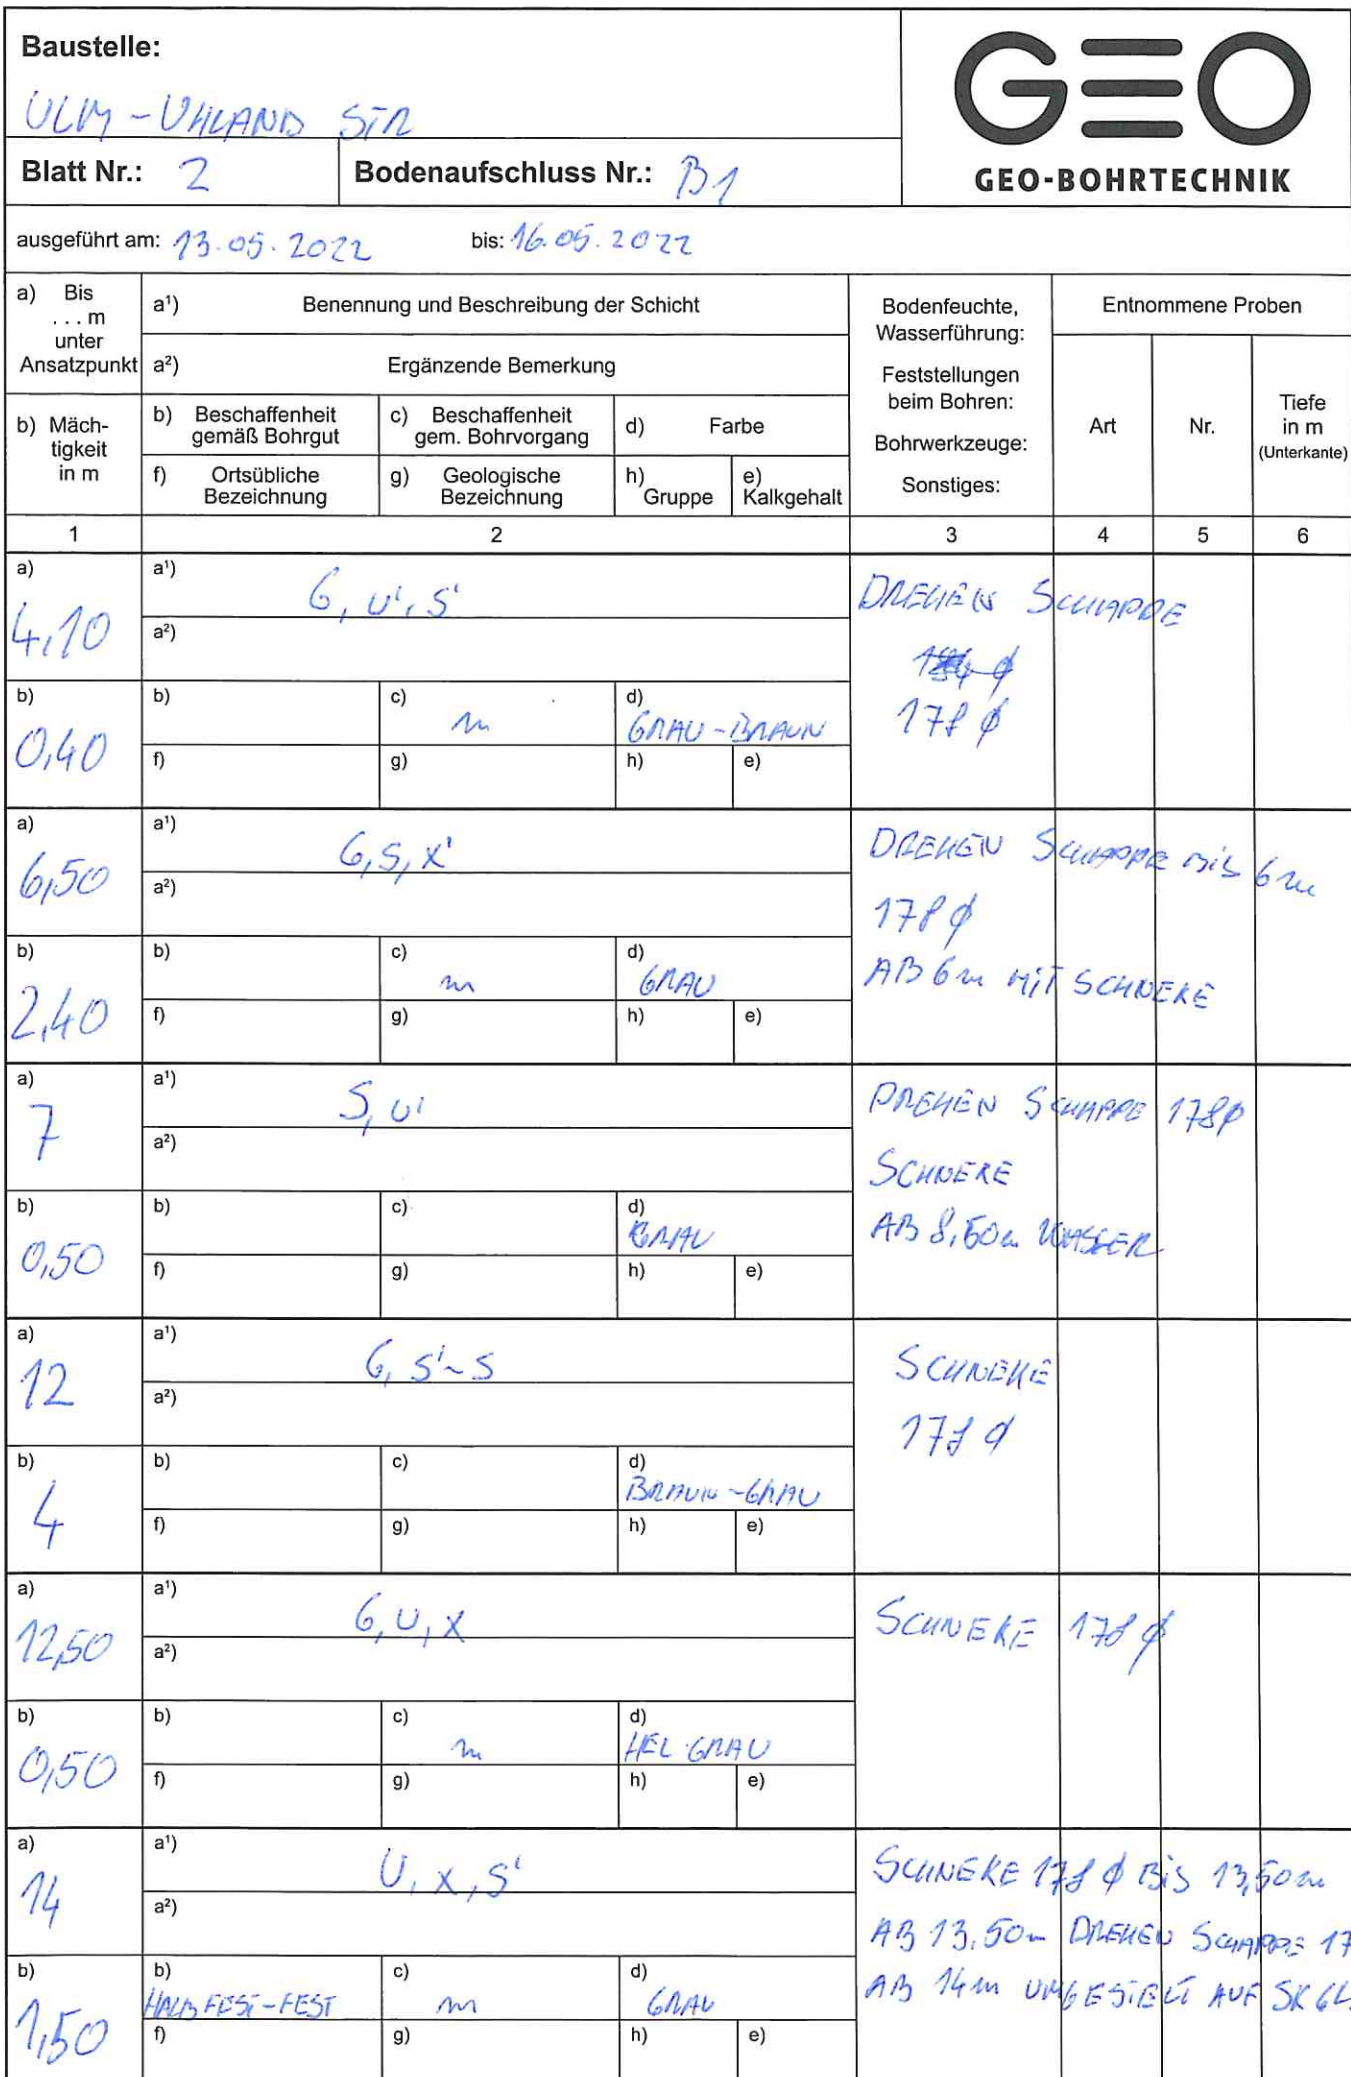 Baustelle:
ULM - UHLAND STR
GEO
GEO-BOHRTECHNIK
Blatt Nr.: 2
Bodenaufschluss Nr.: B1
ausgeführt am: 13.05.2022 bis: 16.05.2022
a) Bis
... m
unter
Ansatzpunkt
b) Mäch-
tigkeit
in m
a¹) Benennung und Beschreibung der Schicht
a²) Ergänzende Bemerkung
b) Beschaffenheit
gemäß Bohrgut
c) Beschaffenheit
gem. Bohrvorgang
d) Farbe
f) Ortsübliche
Bezeichnung
g) Geologische
Bezeichnung
h)
Gruppe
e)
Kalkgehalt
Bodenfeuchte,
Wasserführung:
Feststellungen
beim Bohren:
Bohrwerkzeuge:
Sonstiges:
Entnommene Proben
Art
Nr.
Tiefe
in m
(Unterkante)
1 2 3 4 5 6
a)
4,10
a¹) G, u', s'
a²)
b)
0,40
b)
c) m
d) GRAU-BRAUN
f) g) h) e)
DREHEN SCHAPPE
178 ø
a)
6,50
a¹) G, S, X'
a²)
b)
2,40
b)
c) m
d) GRAU
f) g) h) e)
DREHEN SCHAPPE BIS 6m
178 ø
AB 6m MIT SCHNEKE
a)
7
a¹) S, u'
a²)
b)
0,50
b)
c)
d) GRAU
f) g) h) e)
DREHEN SCHAPPE 178ø
SCHNEKE
AB 8,50m WASSER
a)
12
a¹) G, s'~s
a²)
b)
4
b)
c)
d) BRAUN-GRAU
f) g) h) e)
SCHNEKE
178 ø
a)
12,50
a¹) G, U, X
a²)
b)
0,50
b)
c) m
d) HEL GRAU
f) g) h) e)
SCHNEKE 178 ø
a)
14
a¹) U, X, S'
a²)
b)
1,50
b) HALBFEST-FEST
c) m
d) GRAU
f) g) h) e)
SCHNEKE 178 ø BIS 13,50m
AB 13,50m DREHEN SCHAPPE 17
AB 14m UMGESTELT AUF SK6L